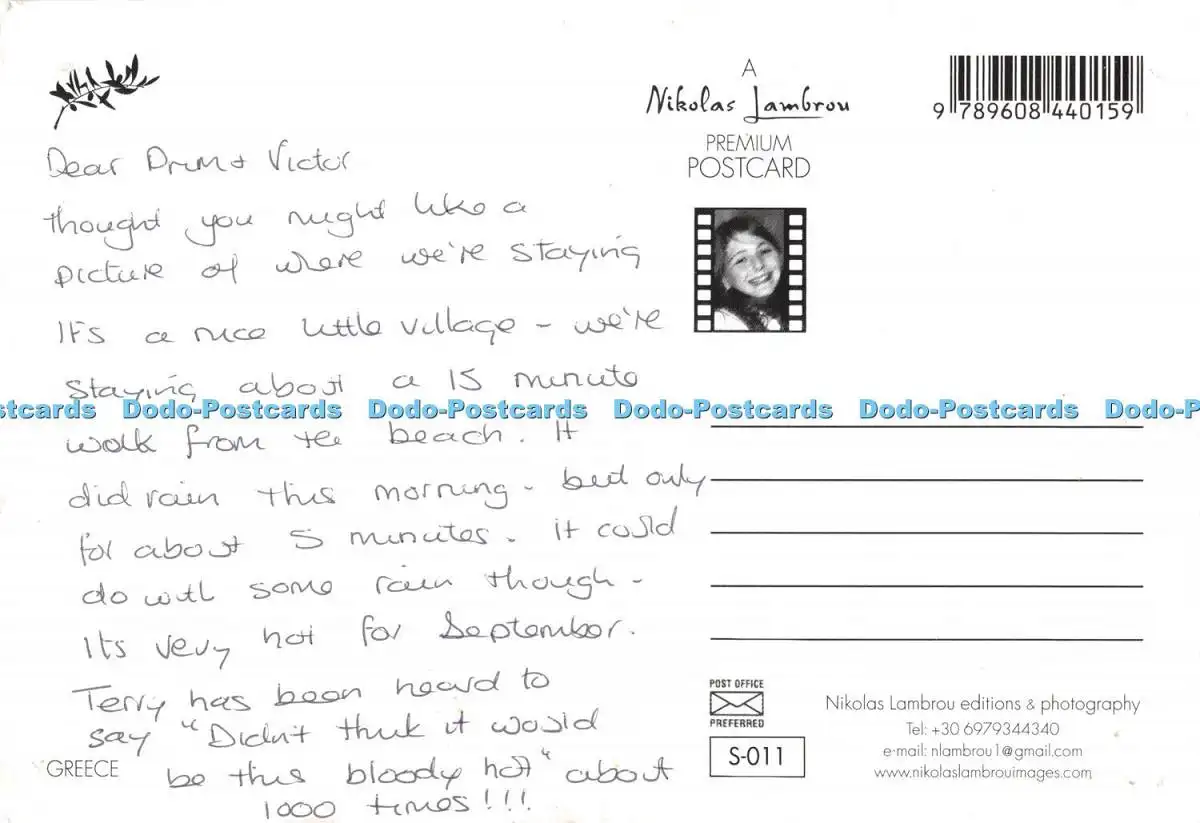 A
Nikolas Lambrou
PREMIUM
POSTCARD
9 789608 440159
Dear Drum + Victor
thought you might like a
picture of where we're staying
It's a nice little village - we're
staying about a 15 minute
stcards Dodo-Postcards Dodo-Postcards Dodo-Postcards Dodo-Postcards Dodo-P
walk from the beach. It
did rain this morning - but only
for about 5 minutes. it could
do with some rain though -
Its very hot for September.
Terry has been heard to
say "Didn't think it would
be this bloody hot" about
1000 times!!!
GREECE
POST OFFICE
PREFERRED
S-011
Nikolas Lambrou editions & photography
Tel: +30 6979344340
e-mail: nlambrou1@gmail.com
www.nikolaslambrouimages.com